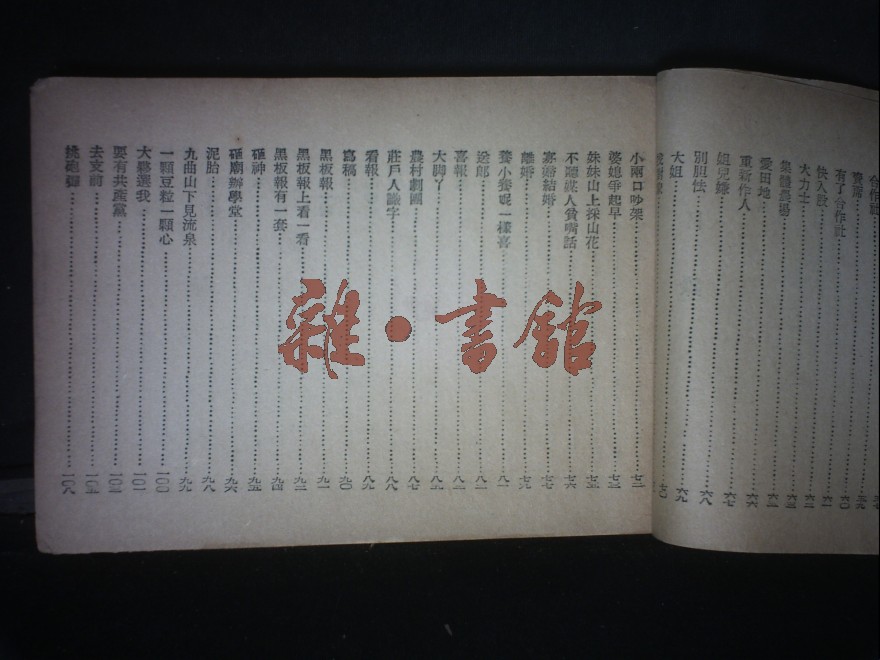 合作社
六〇
有了合作社
快入設……六一
大力士……六二
集體農場……六三
愛田地……六四
重新作人……六六
姐兒纏……六七
別胆怯……六八
大姐……六九
小兩口吵架……七二
婆媳爭起早……七三
妹妹山上採山花……七五
不聽媒人貧嘴話……七六
寡婦結婚……七七
離婚……七九
養小養妮一樣喜……八一
送郎……八二
喜報……八三
大脚丫……八五
農村劇團……八七
莊戶人識字……八八
看報……八九
寫稿……九〇
黑板報……九一
黑板報上看一看……九二
黑板報有一套……九四
砸神……九五
砸廟辦學堂……九六
泥胎……九八
九曲山下見流泉……九九
一顆豆粒一顆心……一〇〇
大夥選我……一〇一
要有共產黨……一〇三
去支前……一〇五
挑砲彈……一〇八
雜·書館